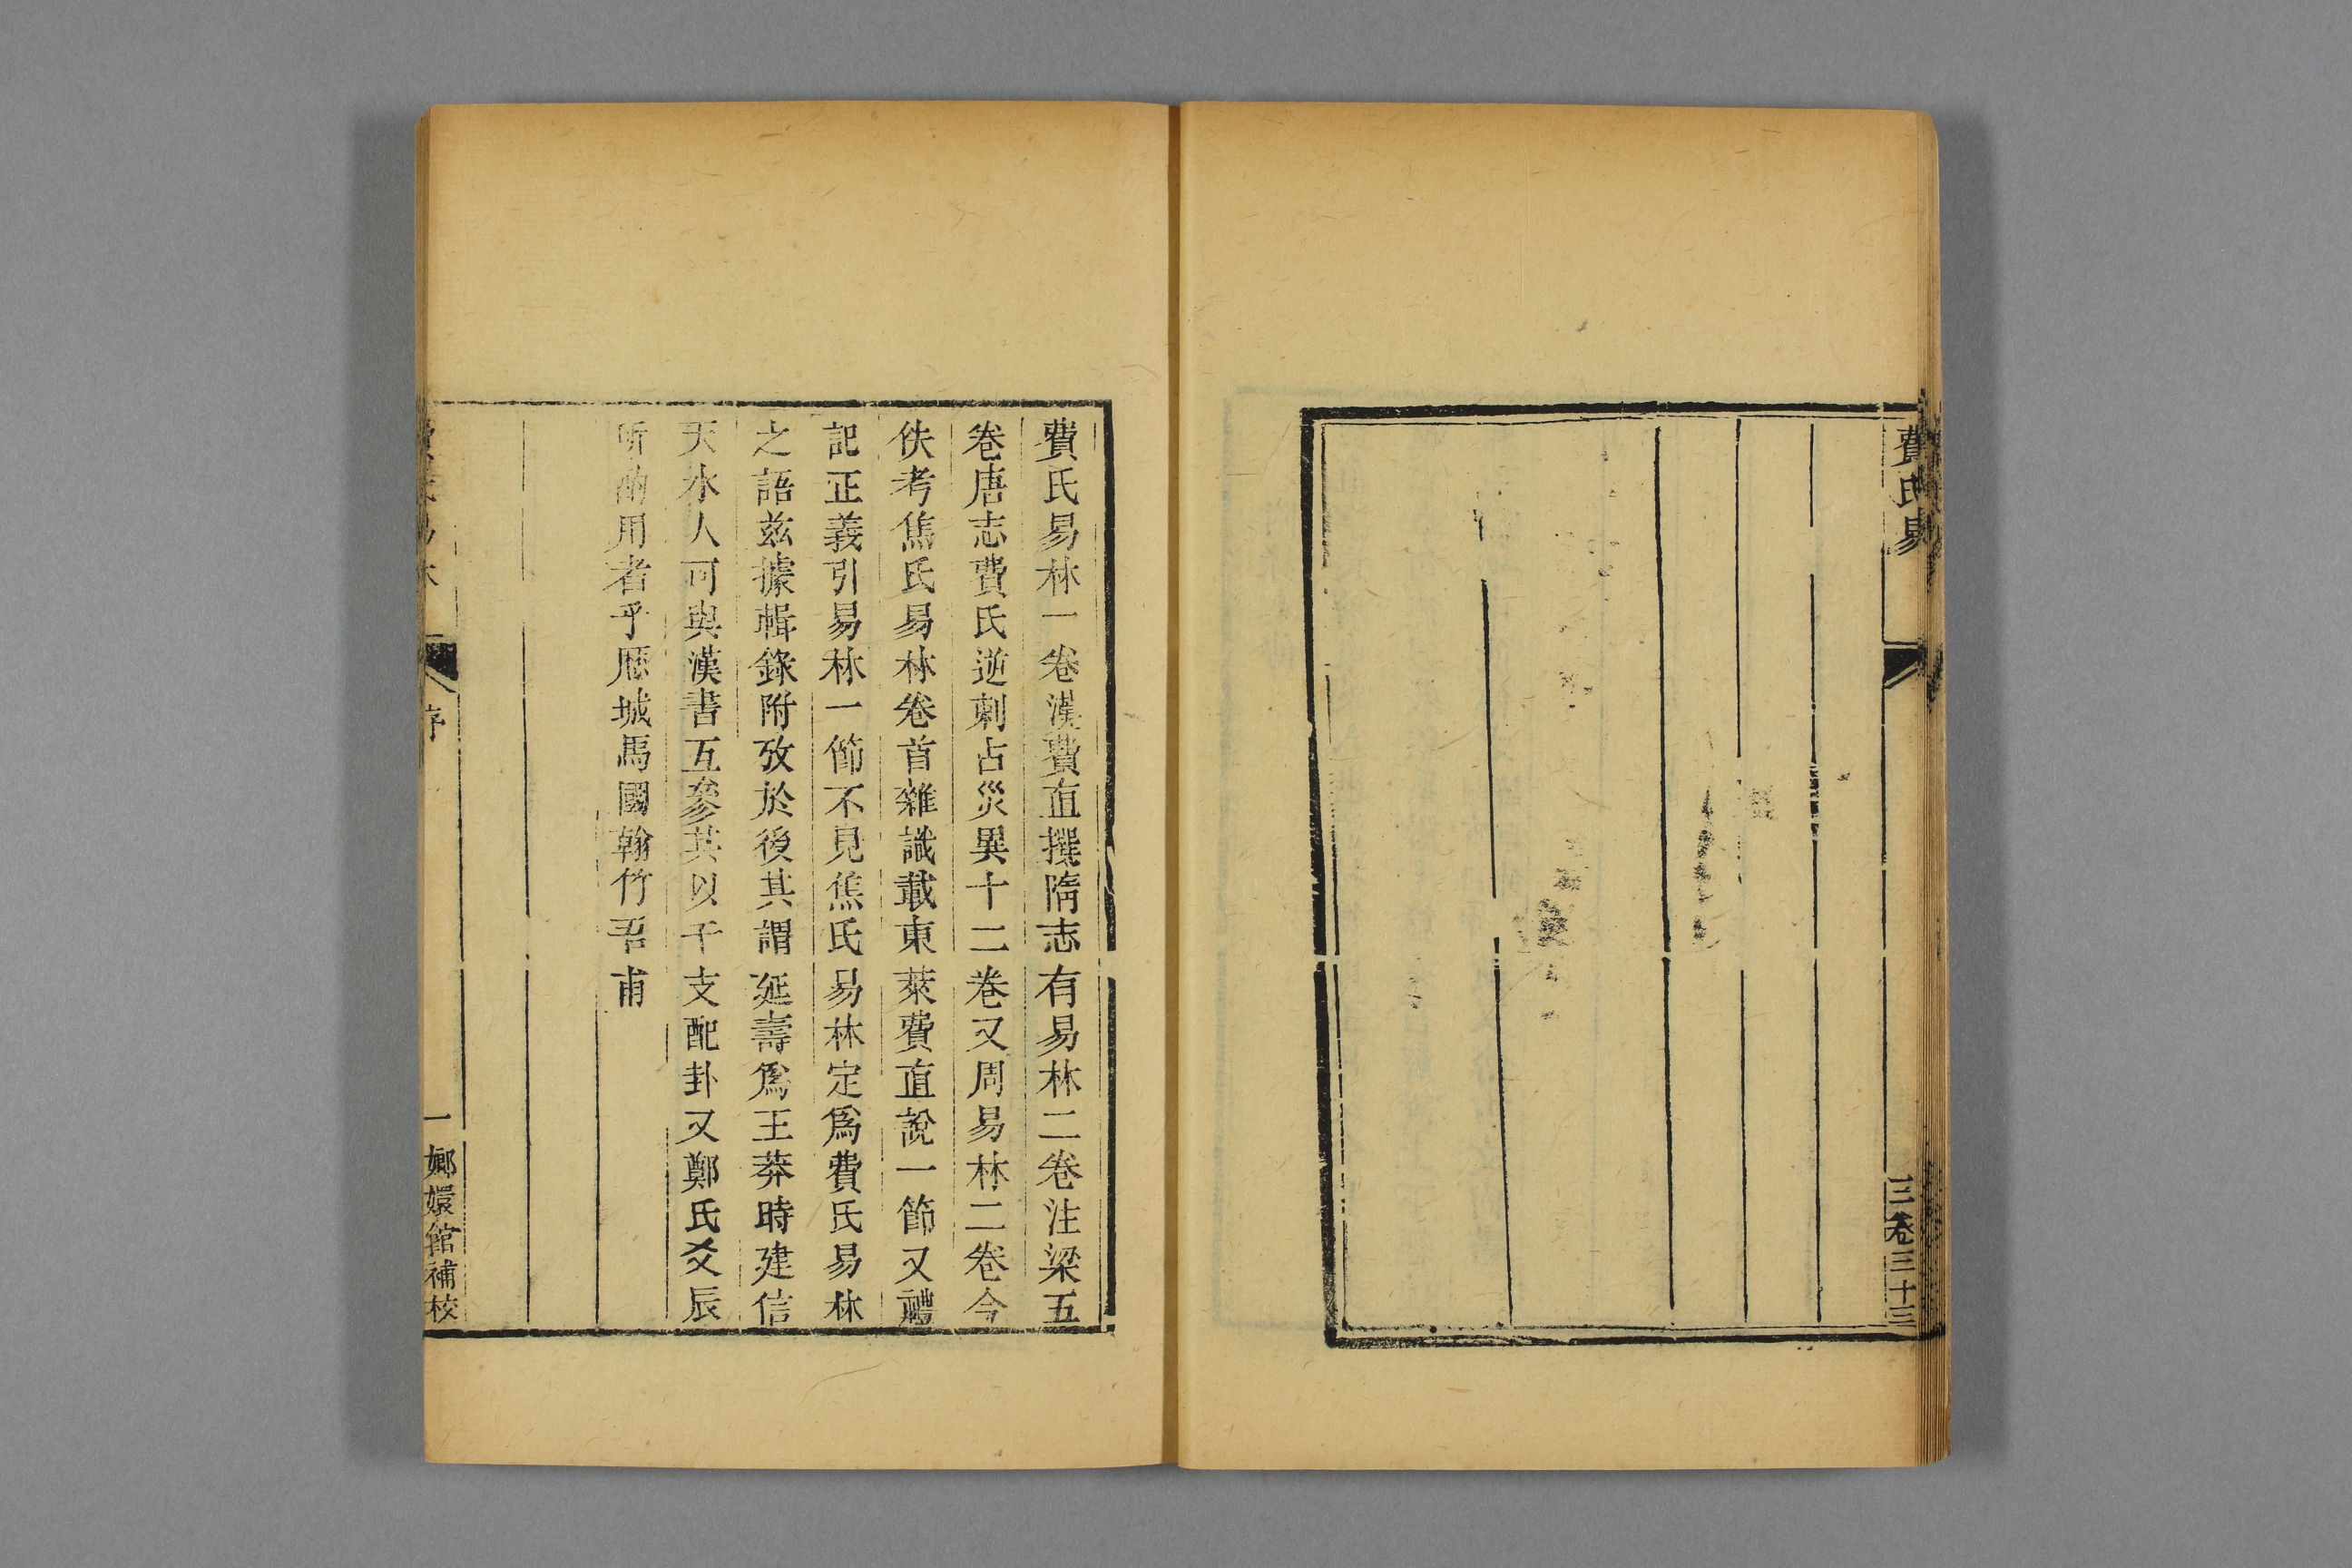 費氏易
三卷三十三
費氏易林一卷漢費直撰隋志有易林二卷注梁五
卷唐志費氏逆刺占災異十二卷又周易林二卷今
佚考焦氏易林卷首雜識載東萊費直說一節又禮
記正義引易林一節不見焦氏易林定爲費氏易林
之語兹據輯錄附攷於後其謂延壽爲王莽時建信
天水人可與漢書互參其以干支配卦又鄭氏爻辰
所用者乎歷城馬國翰竹吾甫
序
一
嫏嬛館補校